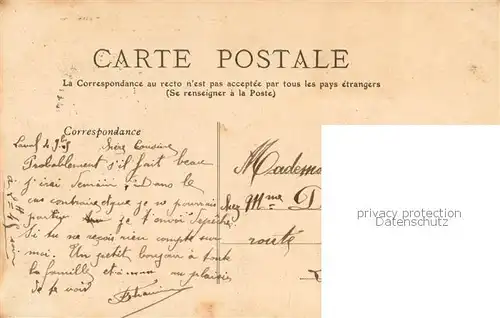 CARTE POSTALE
La Correspondance au recto n'est pas acceptée par tous les pays étrangers
(Se renseigner à la Poste)
Correspondance
Laval 4 9bre Chère Cousine
Probablement s'il fait beau
j'irai demain, dans le
cas contraire que je ne pourrais
partir je t'envoi dépêche
Si tu ne reçois rien compte sur
moi. Un petit bonjour à toute
la famille au plaisir
de te voir
Madem
chez Mme D
route
privacy protection
samples protected